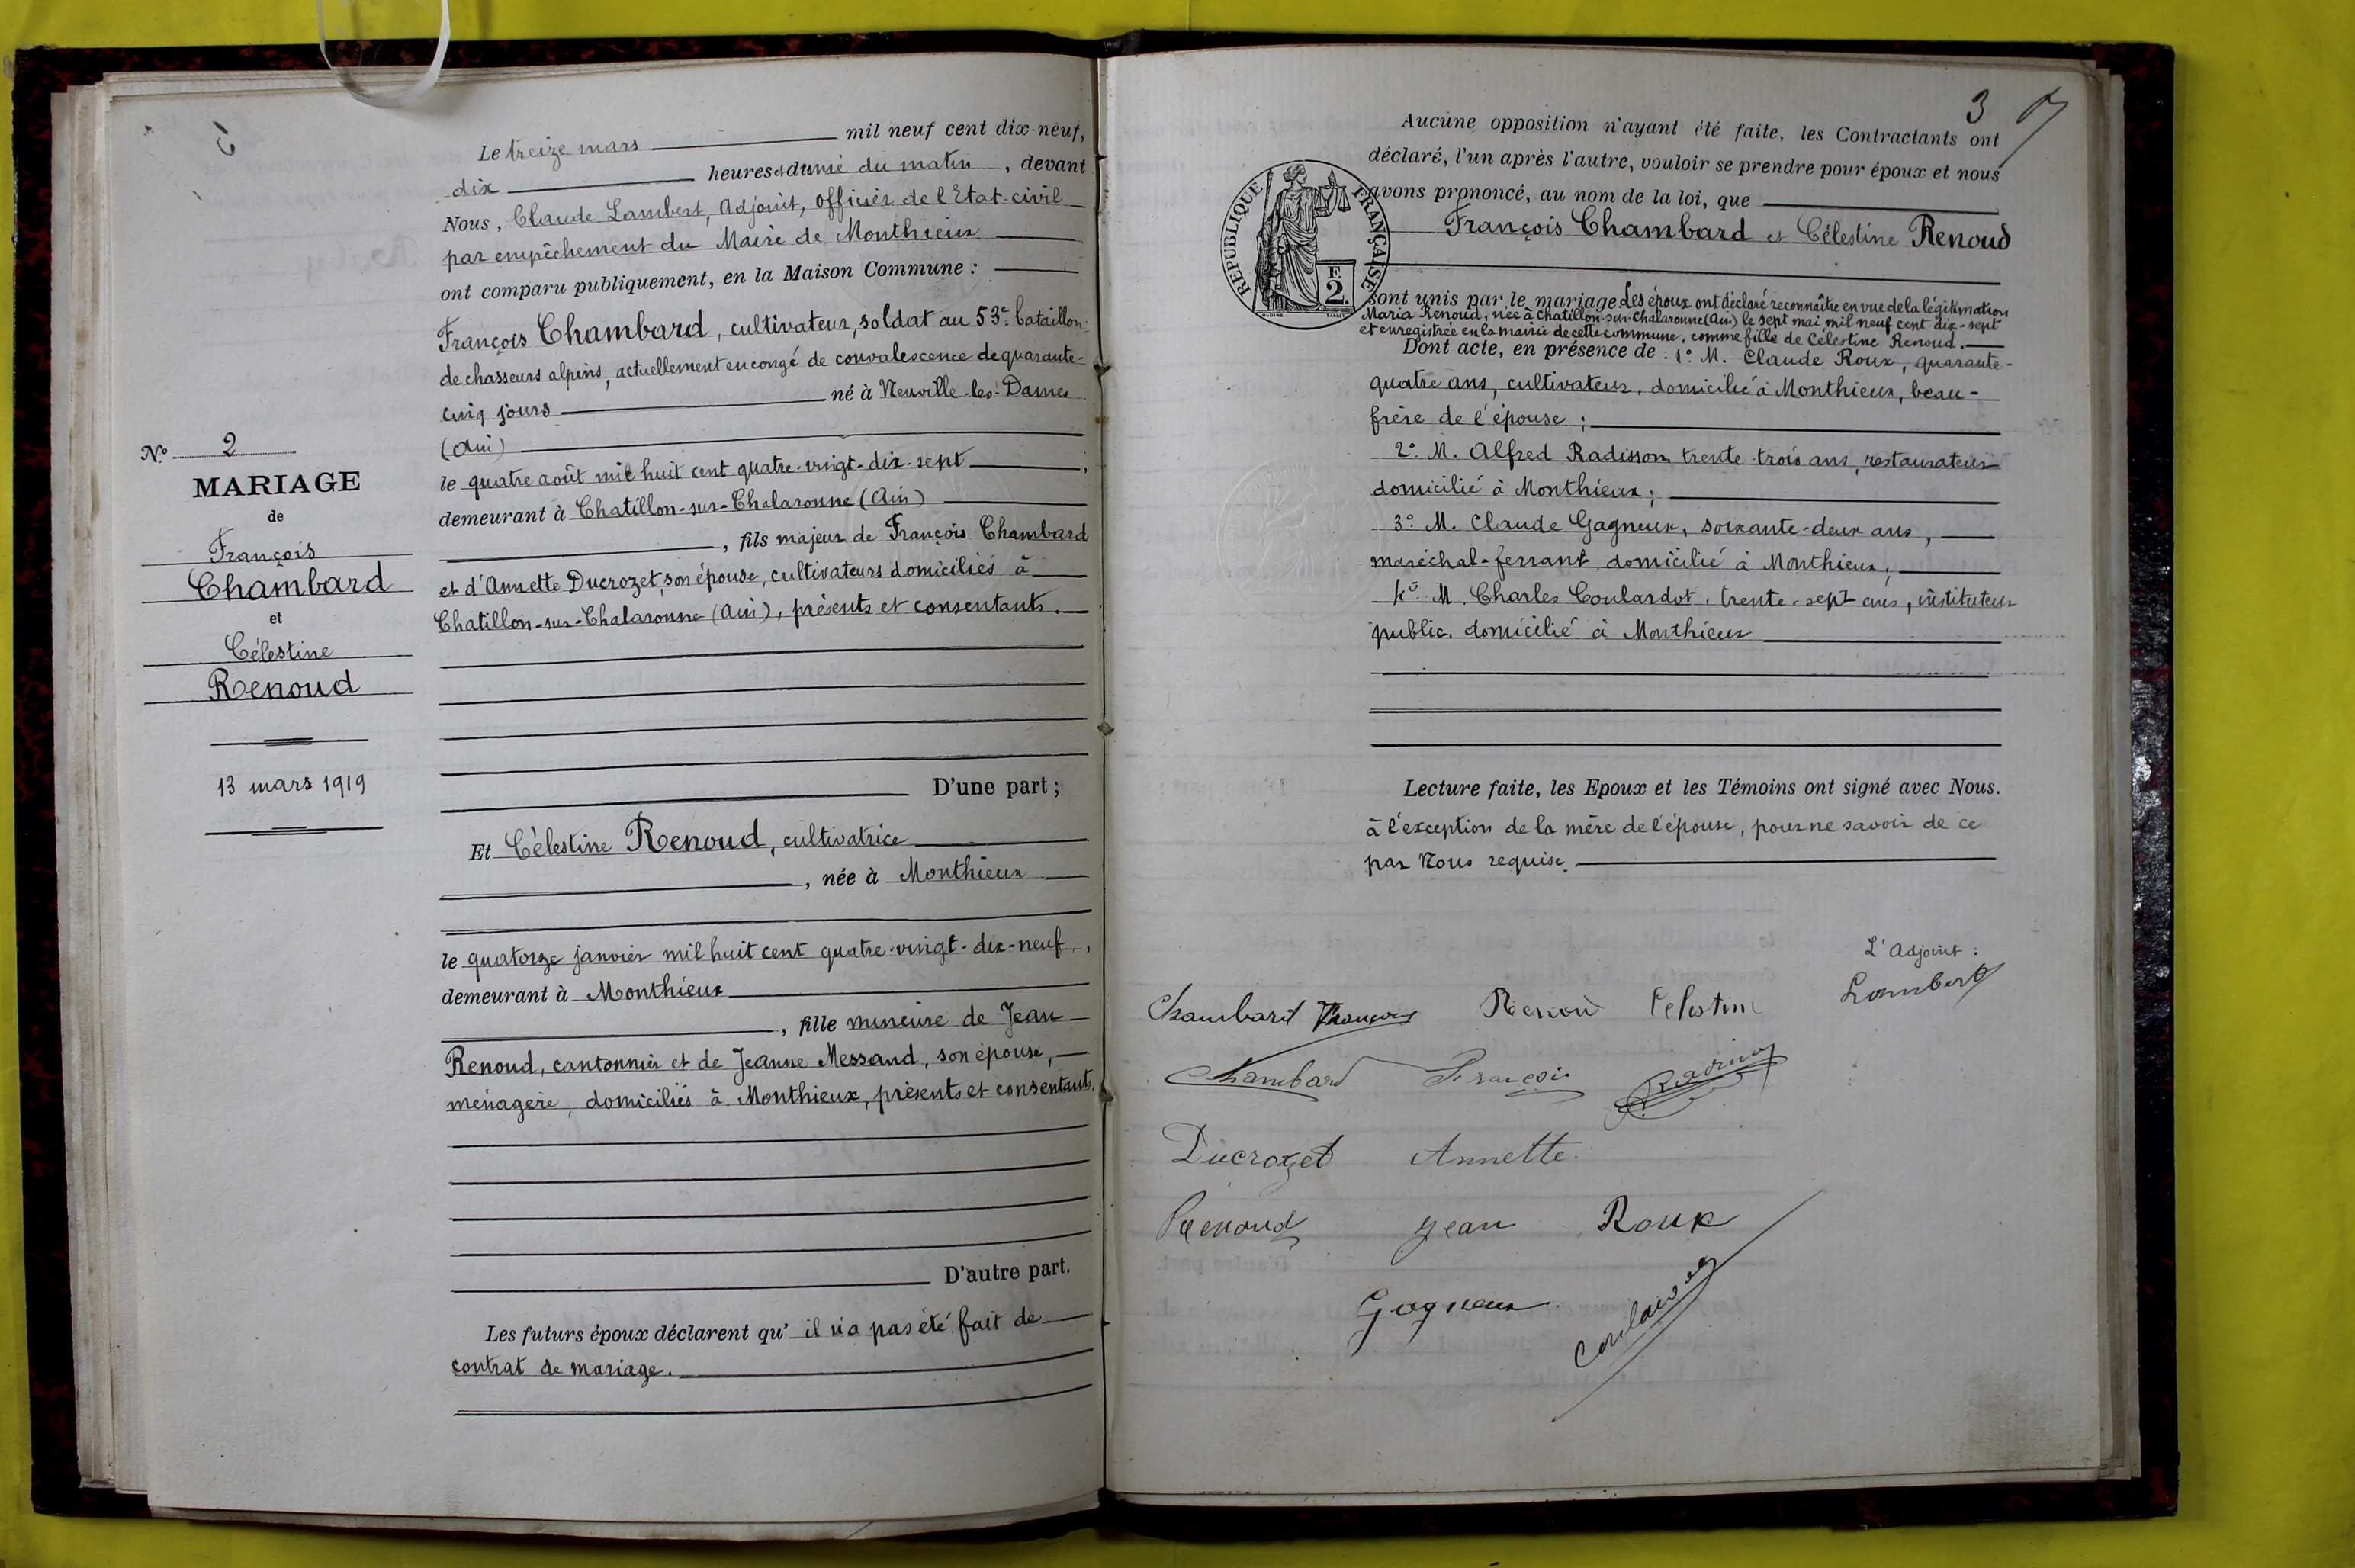 Le treize mars mil neuf cent dix-neuf,
dix heures et demie du matin, devant
Nous, Claude Lambert, Adjoint, officier de l'Etat-civil
par empêchement du Maire de Monthieux
ont comparu publiquement, en la Maison Commune :
François Chambard, cultivateur, soldat au 53e bataillon
de chasseurs alpins, actuellement en congé de convalescence de quarante-
cinq jours né à Neuville-les-Dames
(Ain)
le quatre août mil huit cent quatre-vingt-dix-sept,
demeurant à Chatillon-sur-Chalaronne (Ain)
, fils majeur de François Chambard
et d'Annette Ducrozet, son épouse, cultivateurs domiciliés à
Chatillon-sur-Chalaronne (Ain), présents et consentants.
D'une part ;
Et Célestine Renoud, cultivatrice
, née à Monthieux
le quatorze janvier mil huit cent quatre-vingt-dix-neuf,
demeurant à Monthieux
, fille mineure de Jean
Renoud, cantonnier et de Jeanne Messand, son épouse,
ménagère, domiciliés à Monthieux, présents et consentants.
D'autre part.
Les futurs époux déclarent qu'il n'a pas été fait de
contrat de mariage.
No 2
MARIAGE
de
François
Chambard
et
Célestine
Renoud
13 mars 1919
3
Aucune opposition n'ayant été faite, les Contractants ont
déclaré, l'un après l'autre, vouloir se prendre pour époux et nous
avons prononcé, au nom de la loi, que
RÉPUBLIQUE FRANÇAISE
F.
2.
François Chambard et Célestine Renoud
sont unis par le mariage. Les époux ont déclaré reconnaître en vue de la légitimation
Maria Renoud, née à Chatillon-sur-Chalaronne (Ain) le sept mai mil neuf cent dix-sept
et enregistrée en la mairie de cette commune, comme fille de Célestine Renoud.
Dont acte, en présence de : 1o M. Claude Roux, quarante-
quatre ans, cultivateur, domicilié à Monthieux, beau-
frère de l'épouse ;
2o M. Alfred Radisson trente-trois ans, restaurateur
domicilié à Monthieux ;
3o M. Claude Gagneux, soixante-deux ans,
maréchal-ferrant, domicilié à Monthieux,
4o M. Charles Coulardot, trente-sept ans, instituteur
public, domicilié à Monthieux
Lecture faite, les Epoux et les Témoins ont signé avec Nous.
à l'exception de la mère de l'épouse, pour ne savoir de ce
par Nous requise.
L'Adjoint :
Lambert
Chambard François Renoud Célestine
Chambard François
Ducrozet Annette
Renoud Jean Roux
Gagneux